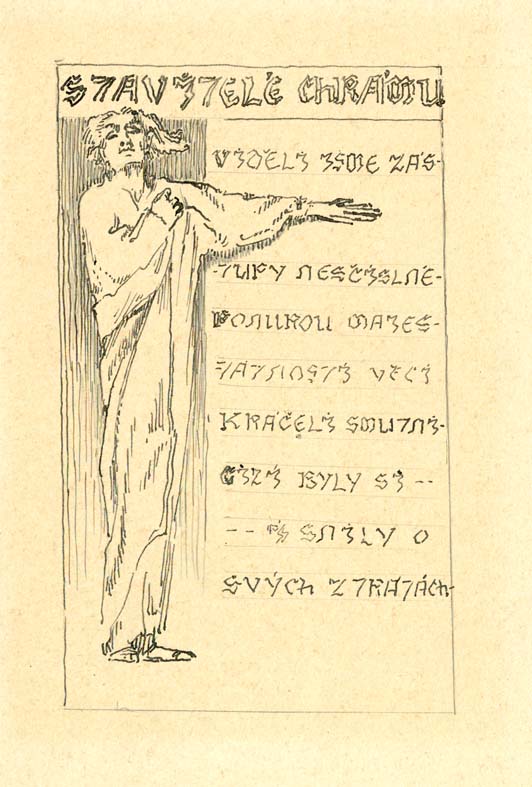 STAVITELÉ CHRÁMU
VIDĚLI JSME ZÁS-
-TUPY NESČÍSLNÉ-
PONUROU MAJES-
TÁTNOSTÍ VĚCÍ
KRÁČELI SMUTNÍ-
CIZÍ BYLY SI --
-- SNILY O
SVÝCH ZTRÁTÁCH-